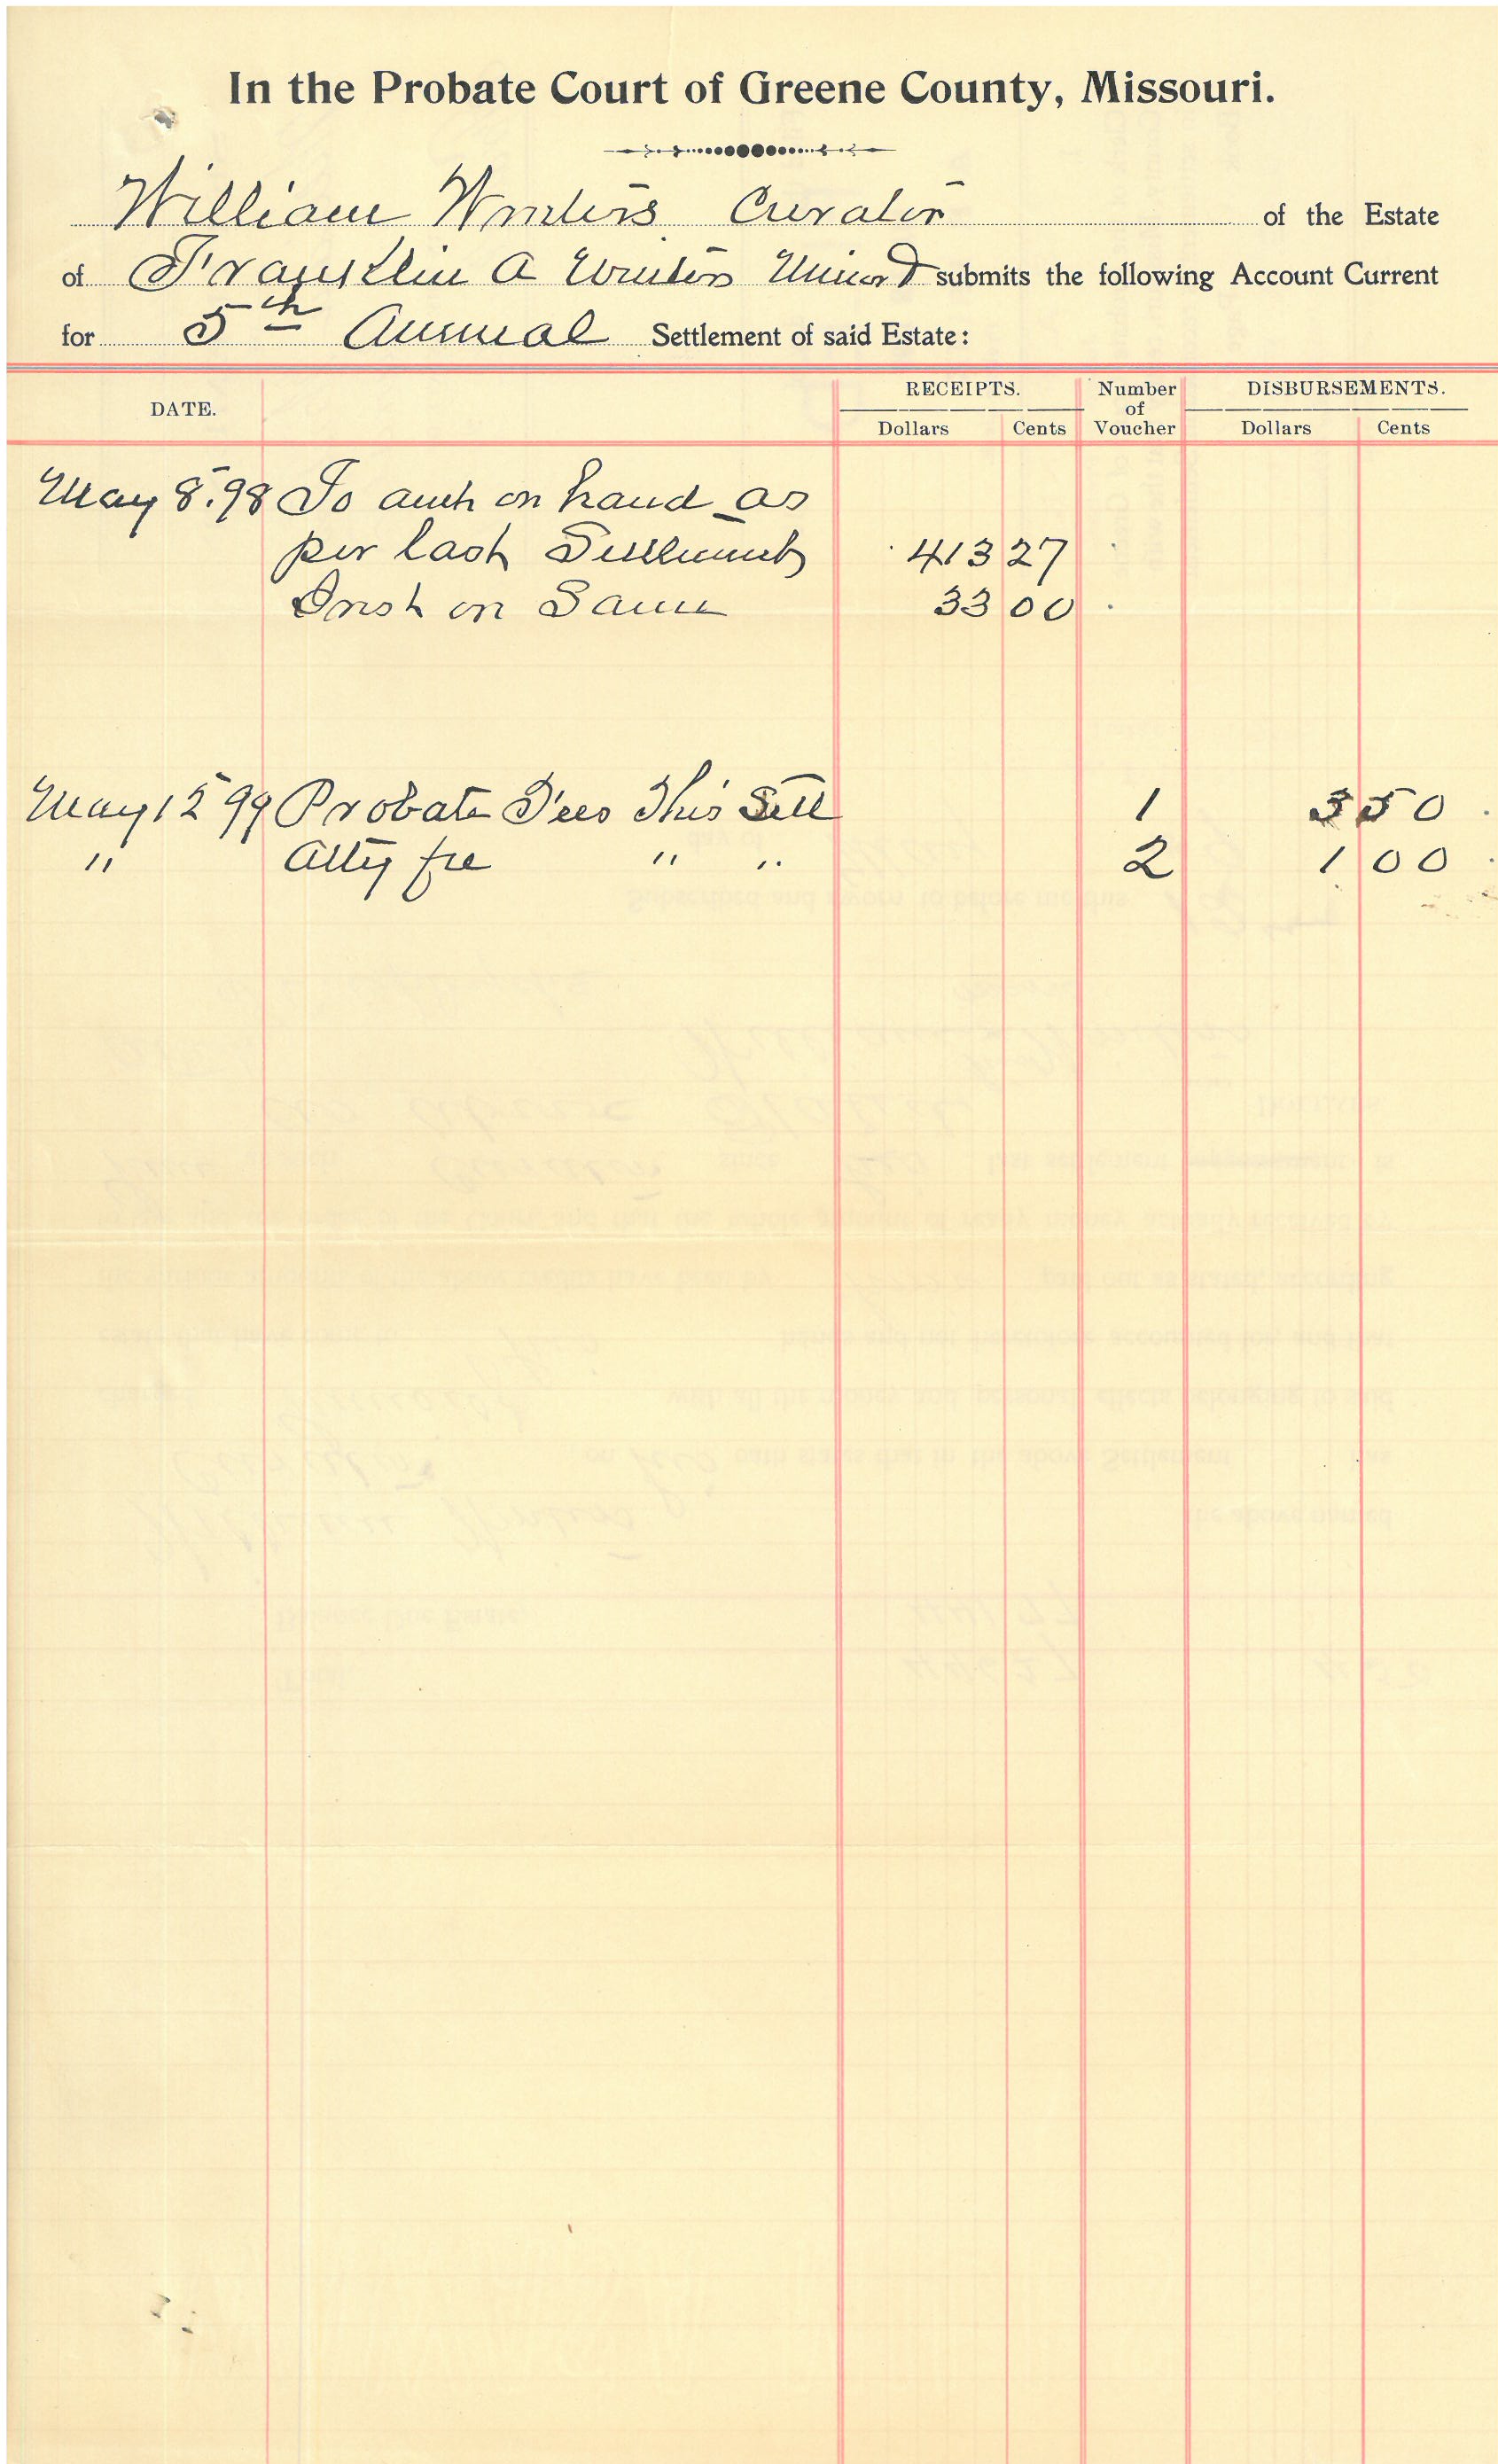 In the Probate Court of Greene County, Missouri.
William Winters Curator of the Estate
of Franklin A Winters Minor submits the following Account Current
for 5th Annual Settlement of said Estate:
DATE. RECEIPTS. Number of Voucher DISBURSEMENTS.
Dollars Cents Dollars Cents
May 8. 98 To amt on hand as
per last Settlement 413 27
Inst on Same 33 00
May 12 99 Probate Fees This Sett 1 3 50
" Atty fee " " 2 1 00